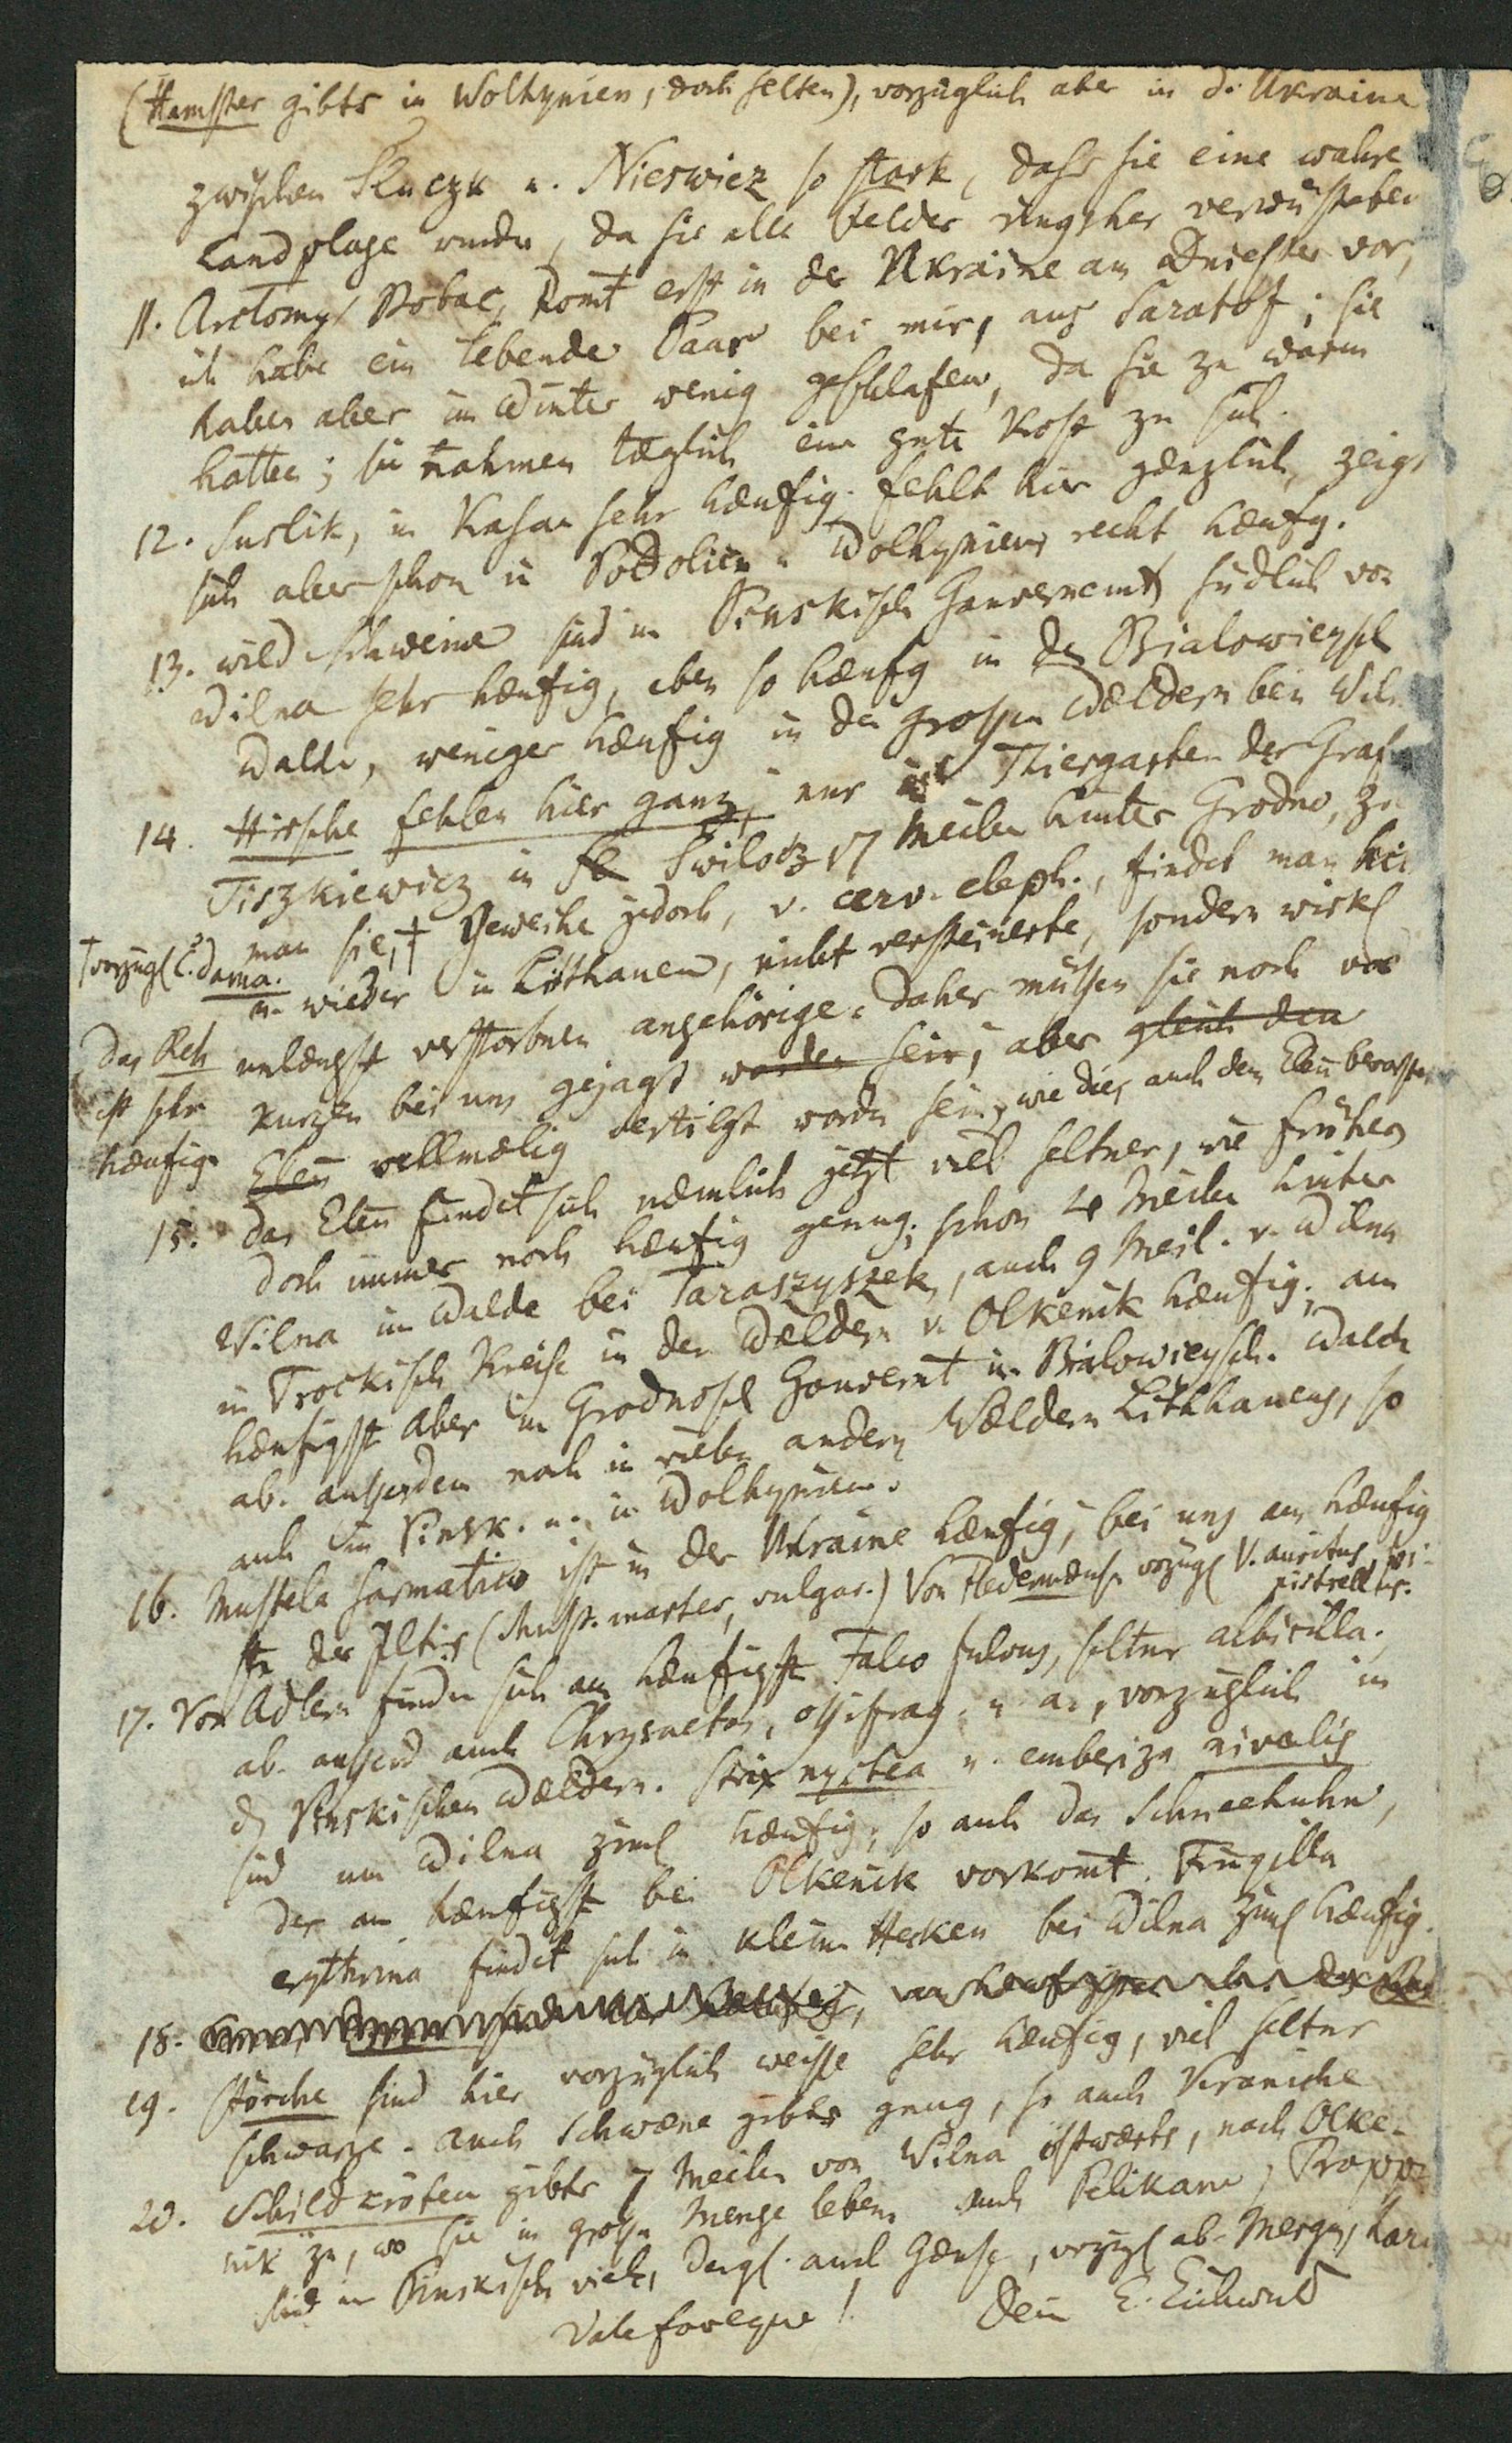 (Hamster gibts in Wolhynien, doch selten), vorzüglich aber in d. Ukraine
zwischen Sluczk u. Nieswicz so stark, dass sie eine wahre
Landplage wurden, da sie alle Felder ringsher verwüsteten
11. Arctomys Bobac, komt erst in der Ukraine am Dniester vor,
ich habe ein lebendes Paar bei mir, aus Saratof; sie
haben aber im Winter wenig geschlafen, da sie zu warm
hatten; sie nahmen tæglich eine gute Kost zu sich.
12. Suslik, in Kasan sehr hæufig, fehlt hier gænzlich, zeigt
sich aber schon in Podolien u. Wolhynien recht hæufig.
13. wilde Schweine sind im Pinskisch Gouvernemt südlich von
Wilna sehr hæufig, eben so hæufig in der Bialowieysch
Walde, weniger hæufig in den grossen Wældern bei Wiln
14. Hirsche fehlen hier ganz, nur im Thiergarten des Grafen
Tiszkiewicz in Swilocz 17 Meilen hinter Grodno, zie
man sie,† Geweihe jedoch, v. cerv. elaph., findet man hie
† vorzügl C. dama.
u. wieder in Litthauen, nicht versteinerte, sondern wirkl
unlængst verstorbnen angehörige. Daher müssen sie noch vor
Das Reh
ist sehr
hæufig.
kurzen bei uns gejagt worden sein, aber gleich den
Elen allmælig vertilgt worden sein, wie dies auch dem Elen bevorsteht
15. Das Elen findet sich næmlich jetzt viel seltner, wie früher,
doch immer noch hæufig genug; schon 4 Meilen hinter
Wilna im Walde bei Taraszyszek, auch 9 Meil. v. Wilna
im Trockisch Kreise in den Wældern v. Olkenik hæufig; am
hæufigsten aber im Grodnosch Gouvernemt im Bialowieysch. Walde
ab. ausserdem noch in vielen andern Wældern Litthauens, so
auch im Pinsk. u. in Wolhynien.
16. Mustela sarmatica ist in der Ukraine hæufig; bei uns am hæufig
sten der Iltis (Must. martes, vulgar.) Von Fledermæusen vorzügl V. auritus, pi-
pistrellus.
17. Von Adlern finden sich am hæufigsten Falco fulvus, seltner albicilla,
ab. ausserd auch Chrysaetos, ossifrag. u. a., vorzüglich in
d Pinskischen Wældern. Strix nyctea u. emberiza nivalis
sind um Wilna ziml hæufig; so auch das Schneehuhn,
das am hæufigsten bei Olkenik vorkomt. Fringilla
erythrina findet sich in kleinen Hecken bei Wilna ziml hæufig.
18.
19. Störche sind hier vorzüglich weisse sehr hæufig, viel seltner
schwarze. auch Schwæne gibts gnug, so auch Kraniche
20. Schildkröten gibts 7 Meilen von Wilna ostwærts, nach Olke-
nik zu, wo sie in grosser Menge leben. Auch Pelikane, Trapp
sind im Pinskischen viele, desgl. auch Gænse, vorzügl ab. Mergus, Lar
Vale faveque! Dein E. Eichwald